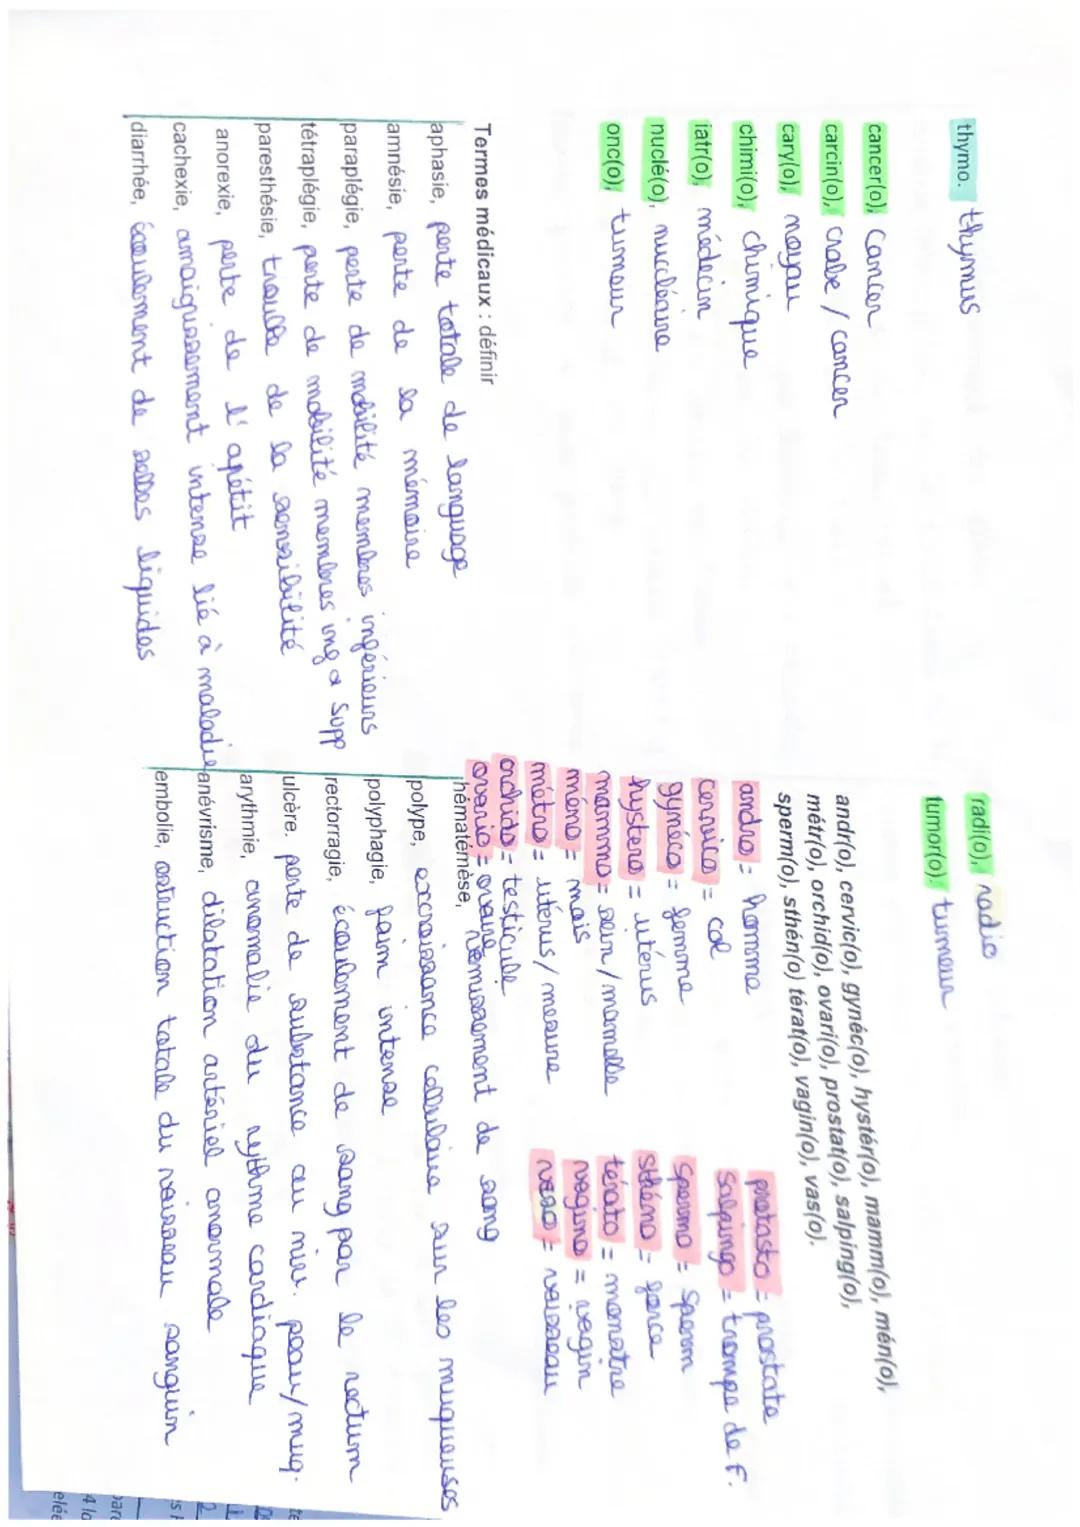 thymo. thymus
cancer(o), cancer
carcin(o), crabe / cancer
cary(o), noyau
chimi(o), chimique
iatr(o), médecin
nuclé(o), nucléaire
onc(o), tumeur
radi(o), radio
tumor(o). tumeur
andr(o), cervic(o), gynéc(o), hystér(o), mamm(o), mén(o),
métr(o), orchid(o), ovari(o), prostat(o), salping(o),
sperm(o), sthén(o) térat(o), vagin(o), vas(o).
andro = homme
cervico = col
gynéco = femme
hystero = utérus
mammo = sein / mamelle
méno = mois
métro = utérus / mesure
orchido = testicule
ovario = ovaire
protasto = prostate
salpingo = trompe de F.
spermo = sperm
sthéno = force
téato = monstre
vagino = vagin
vaso = vaisseau
Termes médicaux : définir
aphasie, perte totale de language
amnésie, perte de la mémoire
paraplégie, perte de mobilité membres inférieurs
tétraplégie, perte de mobilité membres inf & supp
paresthésie, trouble de la sensibilité
anorexie, perte de l'apétit
cachexie, amaigrissement intense lié à maladie
diarrhée, écoulement de selles liquides
hématémèse, vomissement de sang
polype, excroissance cellulaire sur les muqueuses
polyphagie, faim intense
rectorragie, écoulement de sang par le rectum
ulcère, perte de substance au niv. peau/muq.
arythmie, anomalie du rythme cardiaque
anévrisme, dilatation artériel anormale
embolie, obstruction totale du vaisseau sanguin